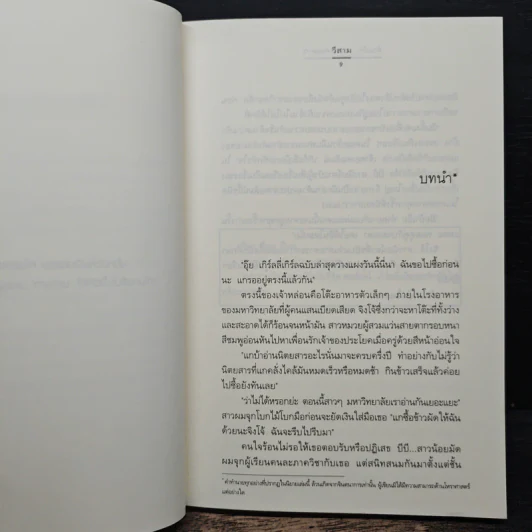 วิสาม
9
บทนำ*
"อุ๊ย เกิร์ลลี่เกิร์ลฉบับล่าสุดวางแผงวันนี้นี่นา ฉันขอไปซื้อก่อน
นะ แกรออยู่ตรงนี้แล้วกัน"
ตรงนี้ของเจ้าหล่อนคือโต๊ะอาหารตัวเล็กๆ ภายในโรงอาหาร
ของมหาวิทยาลัยที่ผู้คนแสนเบียดเสียด จิงโจ้ซึ่งกว่าจะหาโต๊ะที่ทั้งว่าง
และสะอาดได้ก็ร้อนจนหน้ามัน สาวหมวยผู้สวมแว่นสายตากรอบหนา
สีชมพูอ่อนหันไปหาเพื่อนรักเจ้าของประโยคเมื่อครู่ด้วยสีหน้าอ่อนใจ
"แกบ้าอ่านนิตยสารอะไรนั่นมาจะครบครึ่งปี ทำอย่างกับไม่รู้ว่า
นิตยสารที่แกคลั่งไคล้มันหมดเร็วหรือหมดช้า กินข้าวเสร็จแล้วค่อย
ไปซื้อยังทันเลย"
"ว่าไม่ได้หรอกย่ะ ตอนนี้สาวๆ มหาวิทยาลัยเราอ่านกันเยอะแยะ"
สาวผมจุกโบกไม้โบกมือก่อนจะยัดเงินใส่มือเธอ "แกซื้อข้าวผัดให้ฉัน
ด้วยนะจิงโจ้ ฉันจะรีบไปรีบมา"
คนใจร้อนไม่รอให้เธอตอบรับหรือปฏิเสธ บีบี...สาวน้อยมัด
ผมจุกผู้เรียนคนละภาควิชากับเธอ แต่สนิทสนมกันมาตั้งแต่ชั้น
* คำทำนายทุกอย่างที่ปรากฏในนิยายเล่มนี้ ล้วนเกิดจากจินตนาการเท่านั้น ผู้เขียนมิได้มีความสามารถด้านโหราศาสตร์
แต่อย่างใด